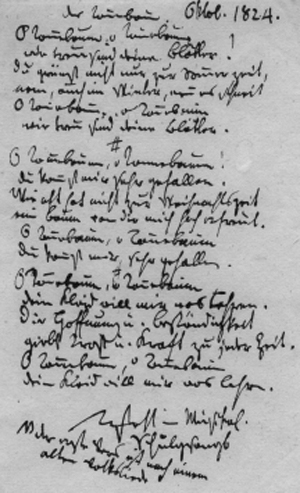 der Tannebaum. Oktob. 1824.
O Tannebaum, o Tannebaum!
wie treu sind deine Blätter!
du grünst nicht nur zur Sommerzeit,
nein, auch im Winter, wenn es schneit
O Tannebaum, o Tannebaum
wie treu sind deine Blätter.
O Tannebaum, o Tannebaum!
du kannst mir sehr gefallen.
Wie oft hat nicht zur Weihnachtszeit
ein Baum von dir mich hoch erfreut.
O Tannebaum, o Tannebaum
du kannst mir sehr gefallen.
O Tannebaum, o Tannebaum
dein Kleid will mich was lehren.
Die Hoffnung u. Beständigkeit
giebt Trost u. Kraft zu jeder Zeit.
O Tannebaum, o Tannebaum
dein Kleid will mir was lehren.
der erste Vers ist nach einem
alten Volksliede